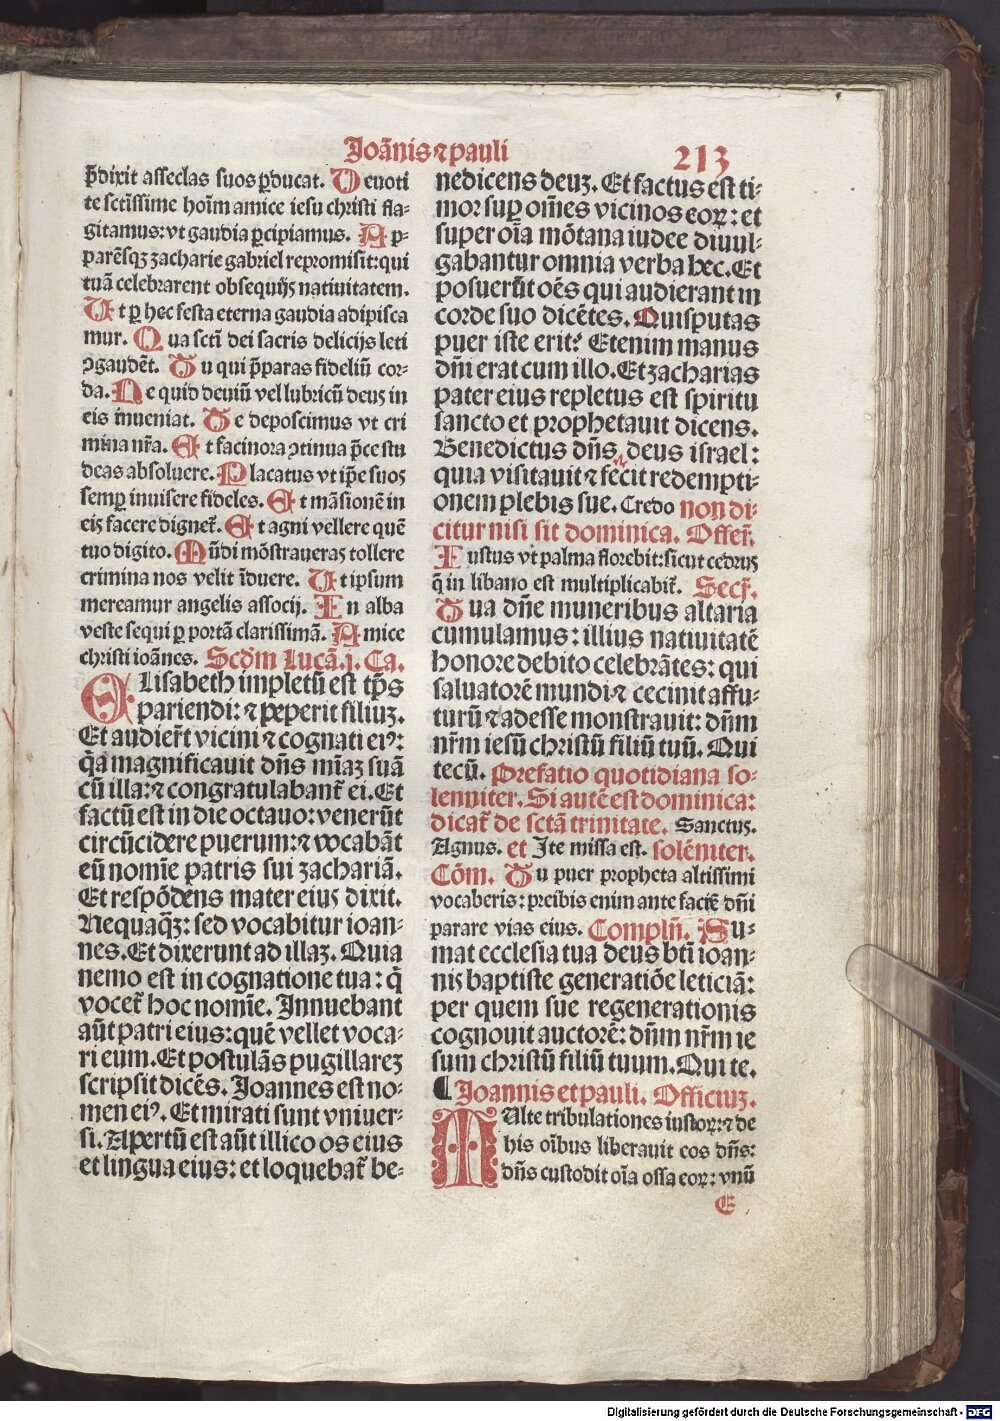 Joãnis ⁊ pauli
213
p̄dixit asseclas suos ꝑducat. Deuoti
te sctissime hoim amice iesu christi fla-
gitamus: vt gaudia ꝑcipiamus. Ap-
parẽsqꝫ zacharie gabriel repromisit: qui
tuã celebrarent obsequijs natiuitatem.
Ut ꝑ hec festa eterna gaudia adipisca
mur. Qua scti dei sacris delicijs leti
ꝯgaudẽt. Tu qui p̄paras fideliũ cor-
da. Ne quid deuiũ vel lubricũ deus in
eis inueniat. Te deposcimus vt cri
mina nr̃a. Et facinora ꝯtinua p̄ce stu
deas absoluere. Placatus vt ip̃e suos
semꝑ inuisere fideles. Et mãsionẽ in
eis facere digneť. Et agni vellere quẽ
tuo digito. Mũdi mõstraueras tollere
crimina nos velit ĩduere. Ut ipsum
mereamur angelis associj. In alba
veste sequi ꝑ portã clarissimã. Amice
christi ioãnes. Scdm Lucã. j. Ca.
Elisabeth impletũ est tp̃s
pariendi: ⁊ peperit filiuꝫ.
Et audier̃t vicini ⁊ cognati eiꝰ:
q̃a magnificauit dñs mĩaꝫ suã
cũ illa: ⁊ congratulabanť ei. Et
factũ est in die octauo: venerũt
circũcidere puerum: ⁊ vocabãt
eũ nomĩe patris sui zachariã.
Et respõdens mater eius dixit.
Nequaq̃ꝫ: sed vocabitur ioan-
nes. Et dixerunt ad illaꝫ. Quia
nemo est in cognatione tua: q̃
voceť hoc nomĩe. Innuebant
aũt patri eius: quẽ vellet voca-
ri eum. Et postulãs pugillareꝫ
scripsit dicẽs. Joannes est no-
men eiꝰ. Et mirati sunt vniuer-
si. Apertũ est aũt illico os eius
et lingua eius: et loquebať be-
nedicens deuꝫ. Et factus est ti-
mor suꝑ om̃es vicinos eoꝝ: et
super oĩa mõtana iudee diuul-
gabantur omnia verba hec. Et
posuerũt oẽs qui audierant in
corde suo dicẽtes. Quis putas
puer iste erit? Etenim manus
dñi erat cum illo. Et zacharias
pater eius repletus est spiritu
sancto et prophetauit dicens.
Benedictus dñs deus israel:
quia visitauit ⁊ fecit redempti-
onem plebis sue. Credo non di-
citur nisi sit dominica. Offeŕ.
Iustus vt palma florebit: sicut cedrus
q̃ in libano est multiplicabiť. Secŕ.
Tua dñe muneribus altaria
cumulamus: illius natiuitatẽ
honore debito celebrãtes: qui
saluatorẽ mundi ⁊ cecinit affu-
turũ ⁊ adesse monstrauit: dñm
nr̃m iesũ christũ filiũ tuũ. Qui
tecũ. Prefatio quotidiana so-
lenniter. Si autẽ est dominica:
dicať de sctã trinitate. Sanctus.
Agnus. et Ite missa est. solẽniter.
Cõm. Tu puer propheta altissimi
vocaberis: preibis enim ante faciẽ dñi
parare vias eius. Complñ. Su-
mat ecclesia tua deus bti ioan-
nis baptiste generatiõe leticiã:
per quem sue regenerationis
cognouit auctorẽ: dñm nr̃m ie
sum christũ filiũ tuum. Qui te.
¶ Joannis et pauli. Officiuꝫ.
Multe tribulationes iustoꝝ: ⁊ de
his oĩbus liberauit eos dñs:
dñs custodit oĩa ossa eoꝝ: vnũ
E
Digitalisierung gefördert durch die Deutsche Forschungsgemeinschaft - DFG